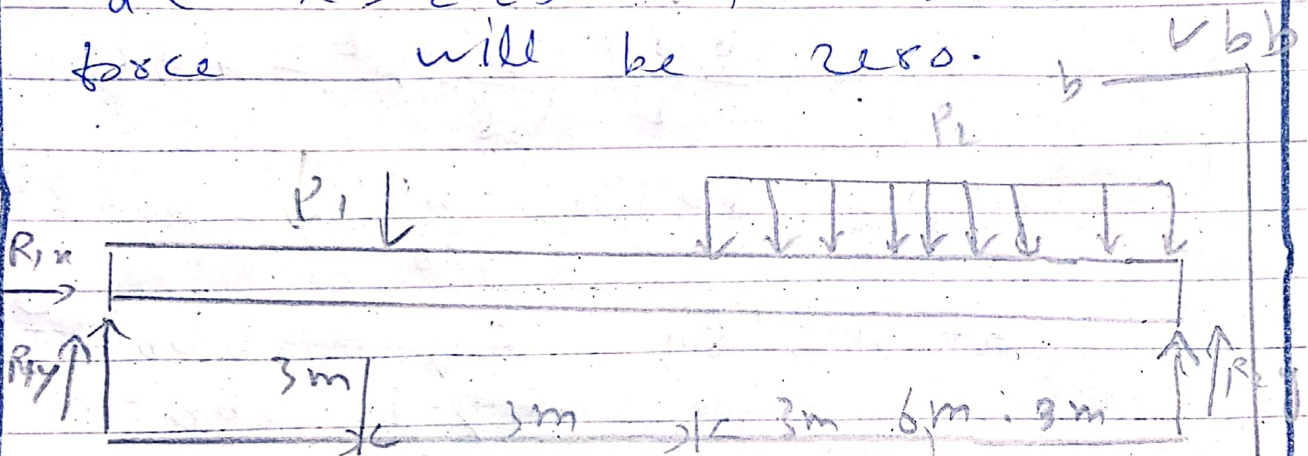 force will be zero.
b
P₁
R₁x
R₁y
3m 3m 3m 6m 3m